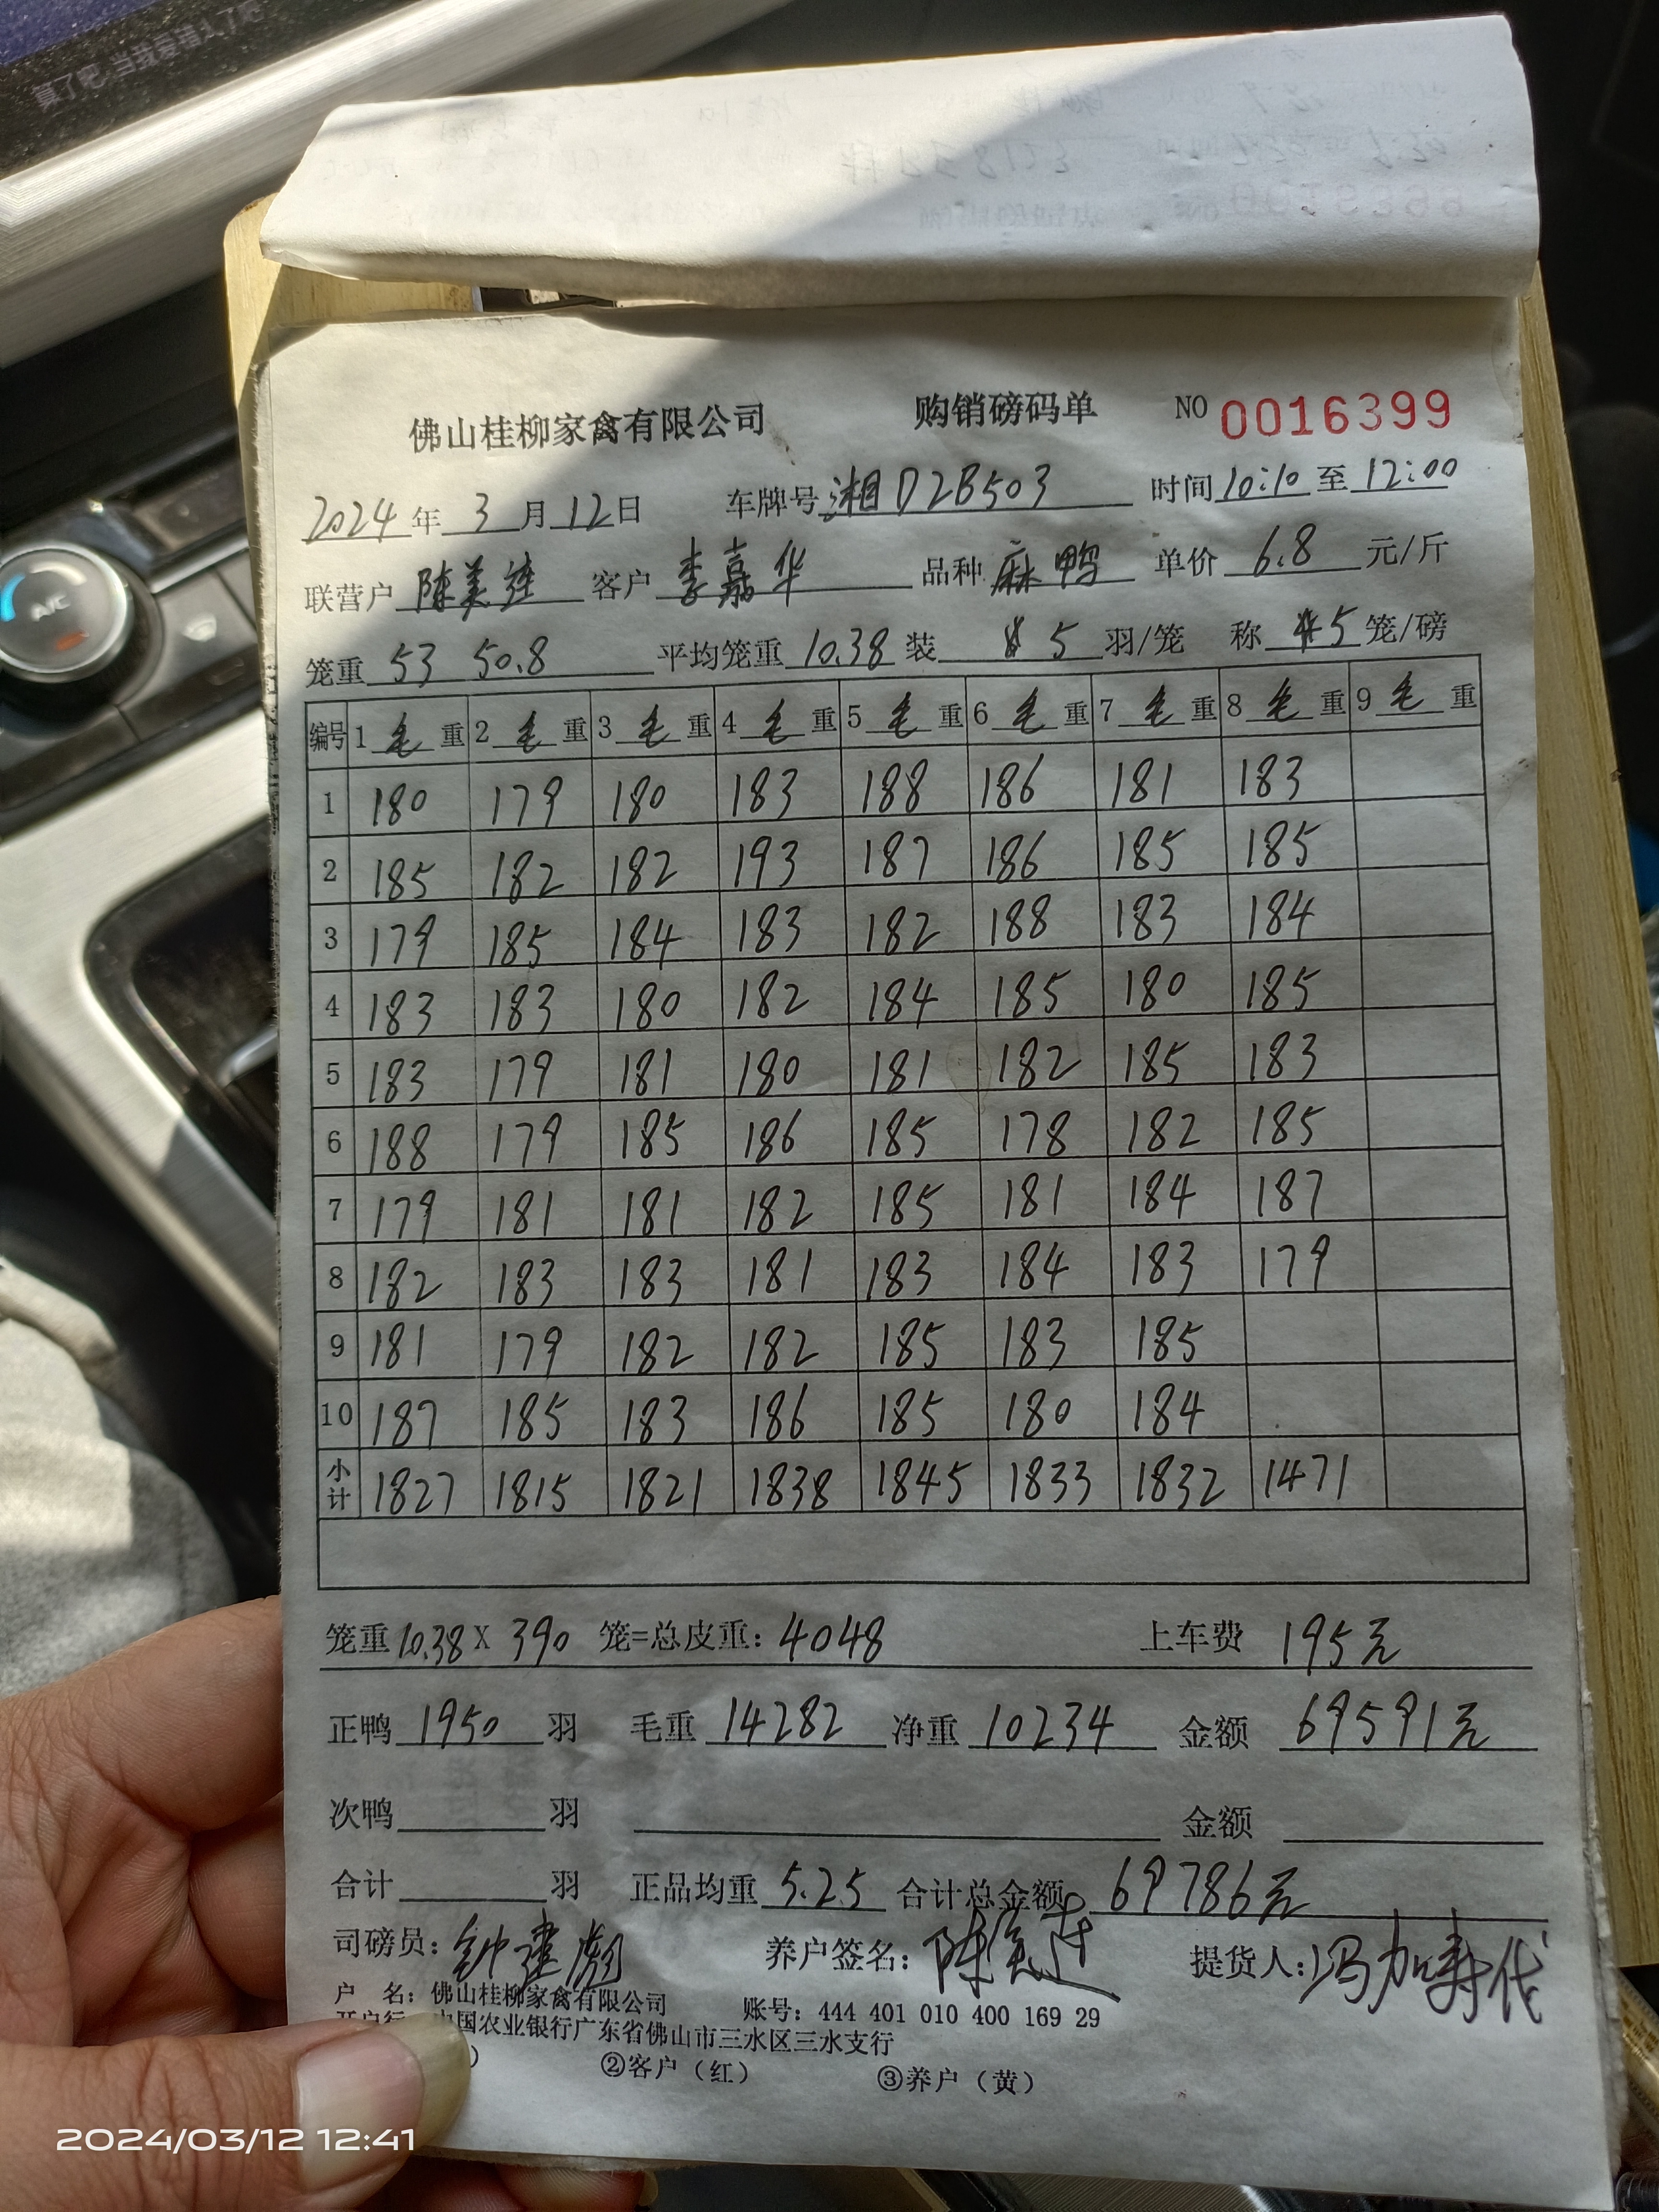 佛山桂柳家禽有限公司 购销磅码单 NO 0016399
2024 年 3 月 12 日 车牌号 湘D2B503 时间 10:10 至 12:00
联营户 陈美连 客户 李嘉华 品种 麻鸭 单价 6.8 元/斤
笼重 53 50.8 平均笼重 10.38 装 5 羽/笼 称 5 笼/磅
编号 1 毛 重 2 毛 重 3 毛 重 4 毛 重 5 毛 重 6 毛 重 7 毛 重 8 毛 重 9 毛 重
1 180 179 180 183 188 186 181 183
2 185 182 182 193 187 186 185 185
3 179 185 184 183 182 188 183 184
4 183 183 180 182 184 185 180 185
5 183 179 181 180 181 182 185 183
6 188 179 185 186 185 178 182 185
7 179 181 181 182 185 181 184 187
8 182 183 183 181 183 184 183 179
9 181 179 182 182 185 183 185
10 187 185 183 186 185 180 184
小计 1827 1815 1821 1838 1845 1833 1832 1471
笼重 10.38 X 390 笼=总皮重: 4048 上车费 195元
正鸭 1950 羽 毛重 14282 净重 10234 金额 69591元
次鸭 羽 金额
合计 羽 正品均重 5.25 合计总金额 69786元
司磅员: 钟建彪 养户签名: 陈美连 提货人: 冯加寿代
户 名: 佛山桂柳家禽有限公司 账号: 444 401 010 400 169 29
中国农业银行广东省佛山市三水区三水支行
②客户（红） ③养户（黄）
2024/03/12 12:41